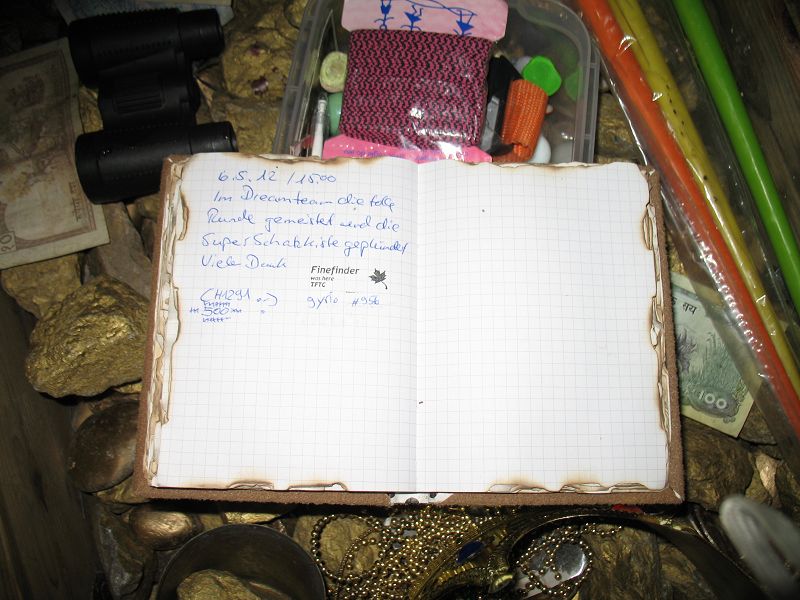 6.5.12 / 15.00
Im Dreamteam die tolle
Runde gemeistet und die
Super Schatzkiste geplündert
Vielen Dank
Finefinder
was here
TFTC
(CH1291
500
gyrlo #956
20
100